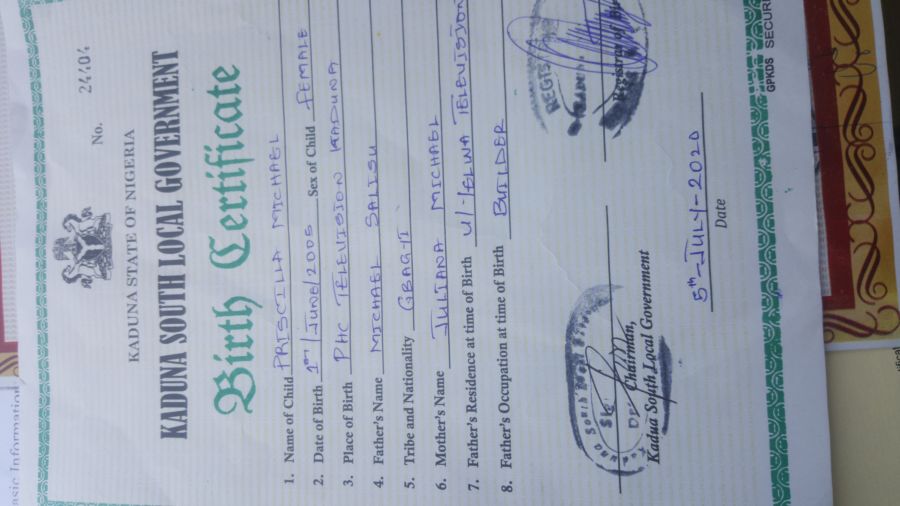 No. 24404
KADUNA STATE OF NIGERIA
KADUNA SOUTH LOCAL GOVERNMENT
Birth Certificate
1. Name of Child PRISCILLA MICHAEL
2. Date of Birth 1st/JUNE/2005 Sex of Child FEMALE
3. Place of Birth PHC TELEVISION KADUNA
4. Father's Name MICHAEL SALISU
5. Tribe and Nationality GBAGYI
6. Mother's Name JULIANA MICHAEL
7. Father's Residence at time of Birth U/-/ELWA TELEVISION
8. Father's Occupation at time of Birth BUILDER
Chairman,
Kadua South Local Government
Registrar of
5th-JULY-2020
Date
GPKDS SECURI
asic Information